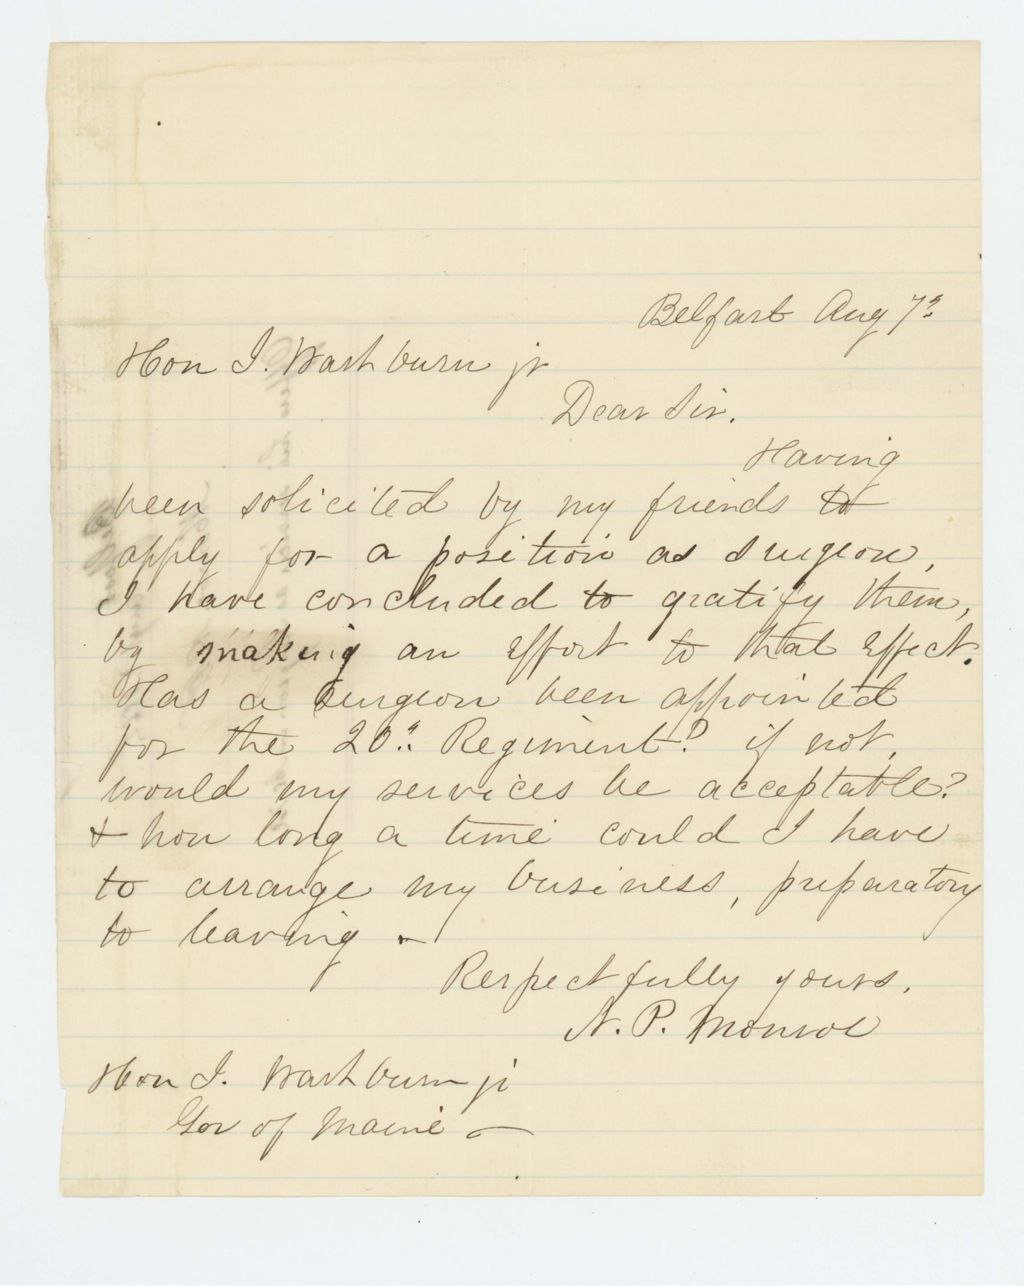 Belfast Aug 7th
Hon I. Washburn jr
Dear Sir.
Having
been solicited by my friends to
apply for a position as Surgeon,
I have concluded to gratify them,
by making an effort to that effect.
Has a Surgeon been appointed
for the 20th Regiment? if not,
would my services be acceptable?
& how long a time could I have
to arrange my business, preparatory
to leaving -
Respectfully yours,
N. P. Monroe
Hon I. Washburn jr
Gov of Maine -